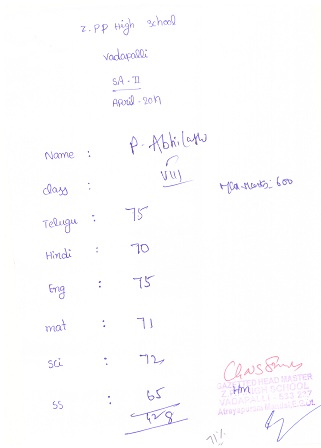 Z.PP High School
Vadapalli
SA-II
April-2017
Name : P. Abhilash
class : VIII
Max marks: 600
Telugu : 75
Hindi : 70
Eng : 75
mat : 71
sci : 72
ss : 65
428
Hm
HEAD MASTER
HIGH SCHOOL
VADAPALLI - 533 237
71%